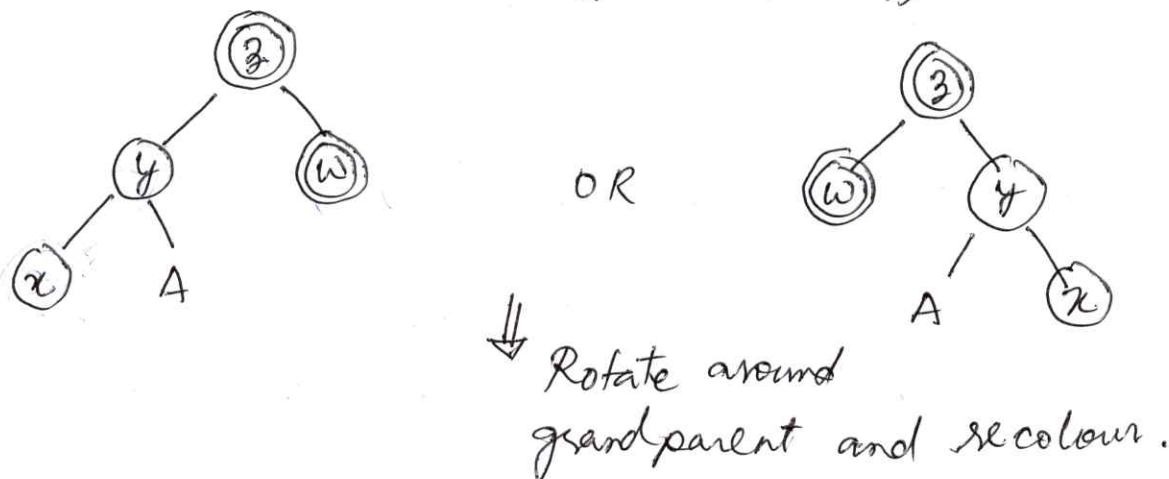 z
z
y
w
OR
w
y
x
A
A
x
Rotate around
grandparent and recolour.